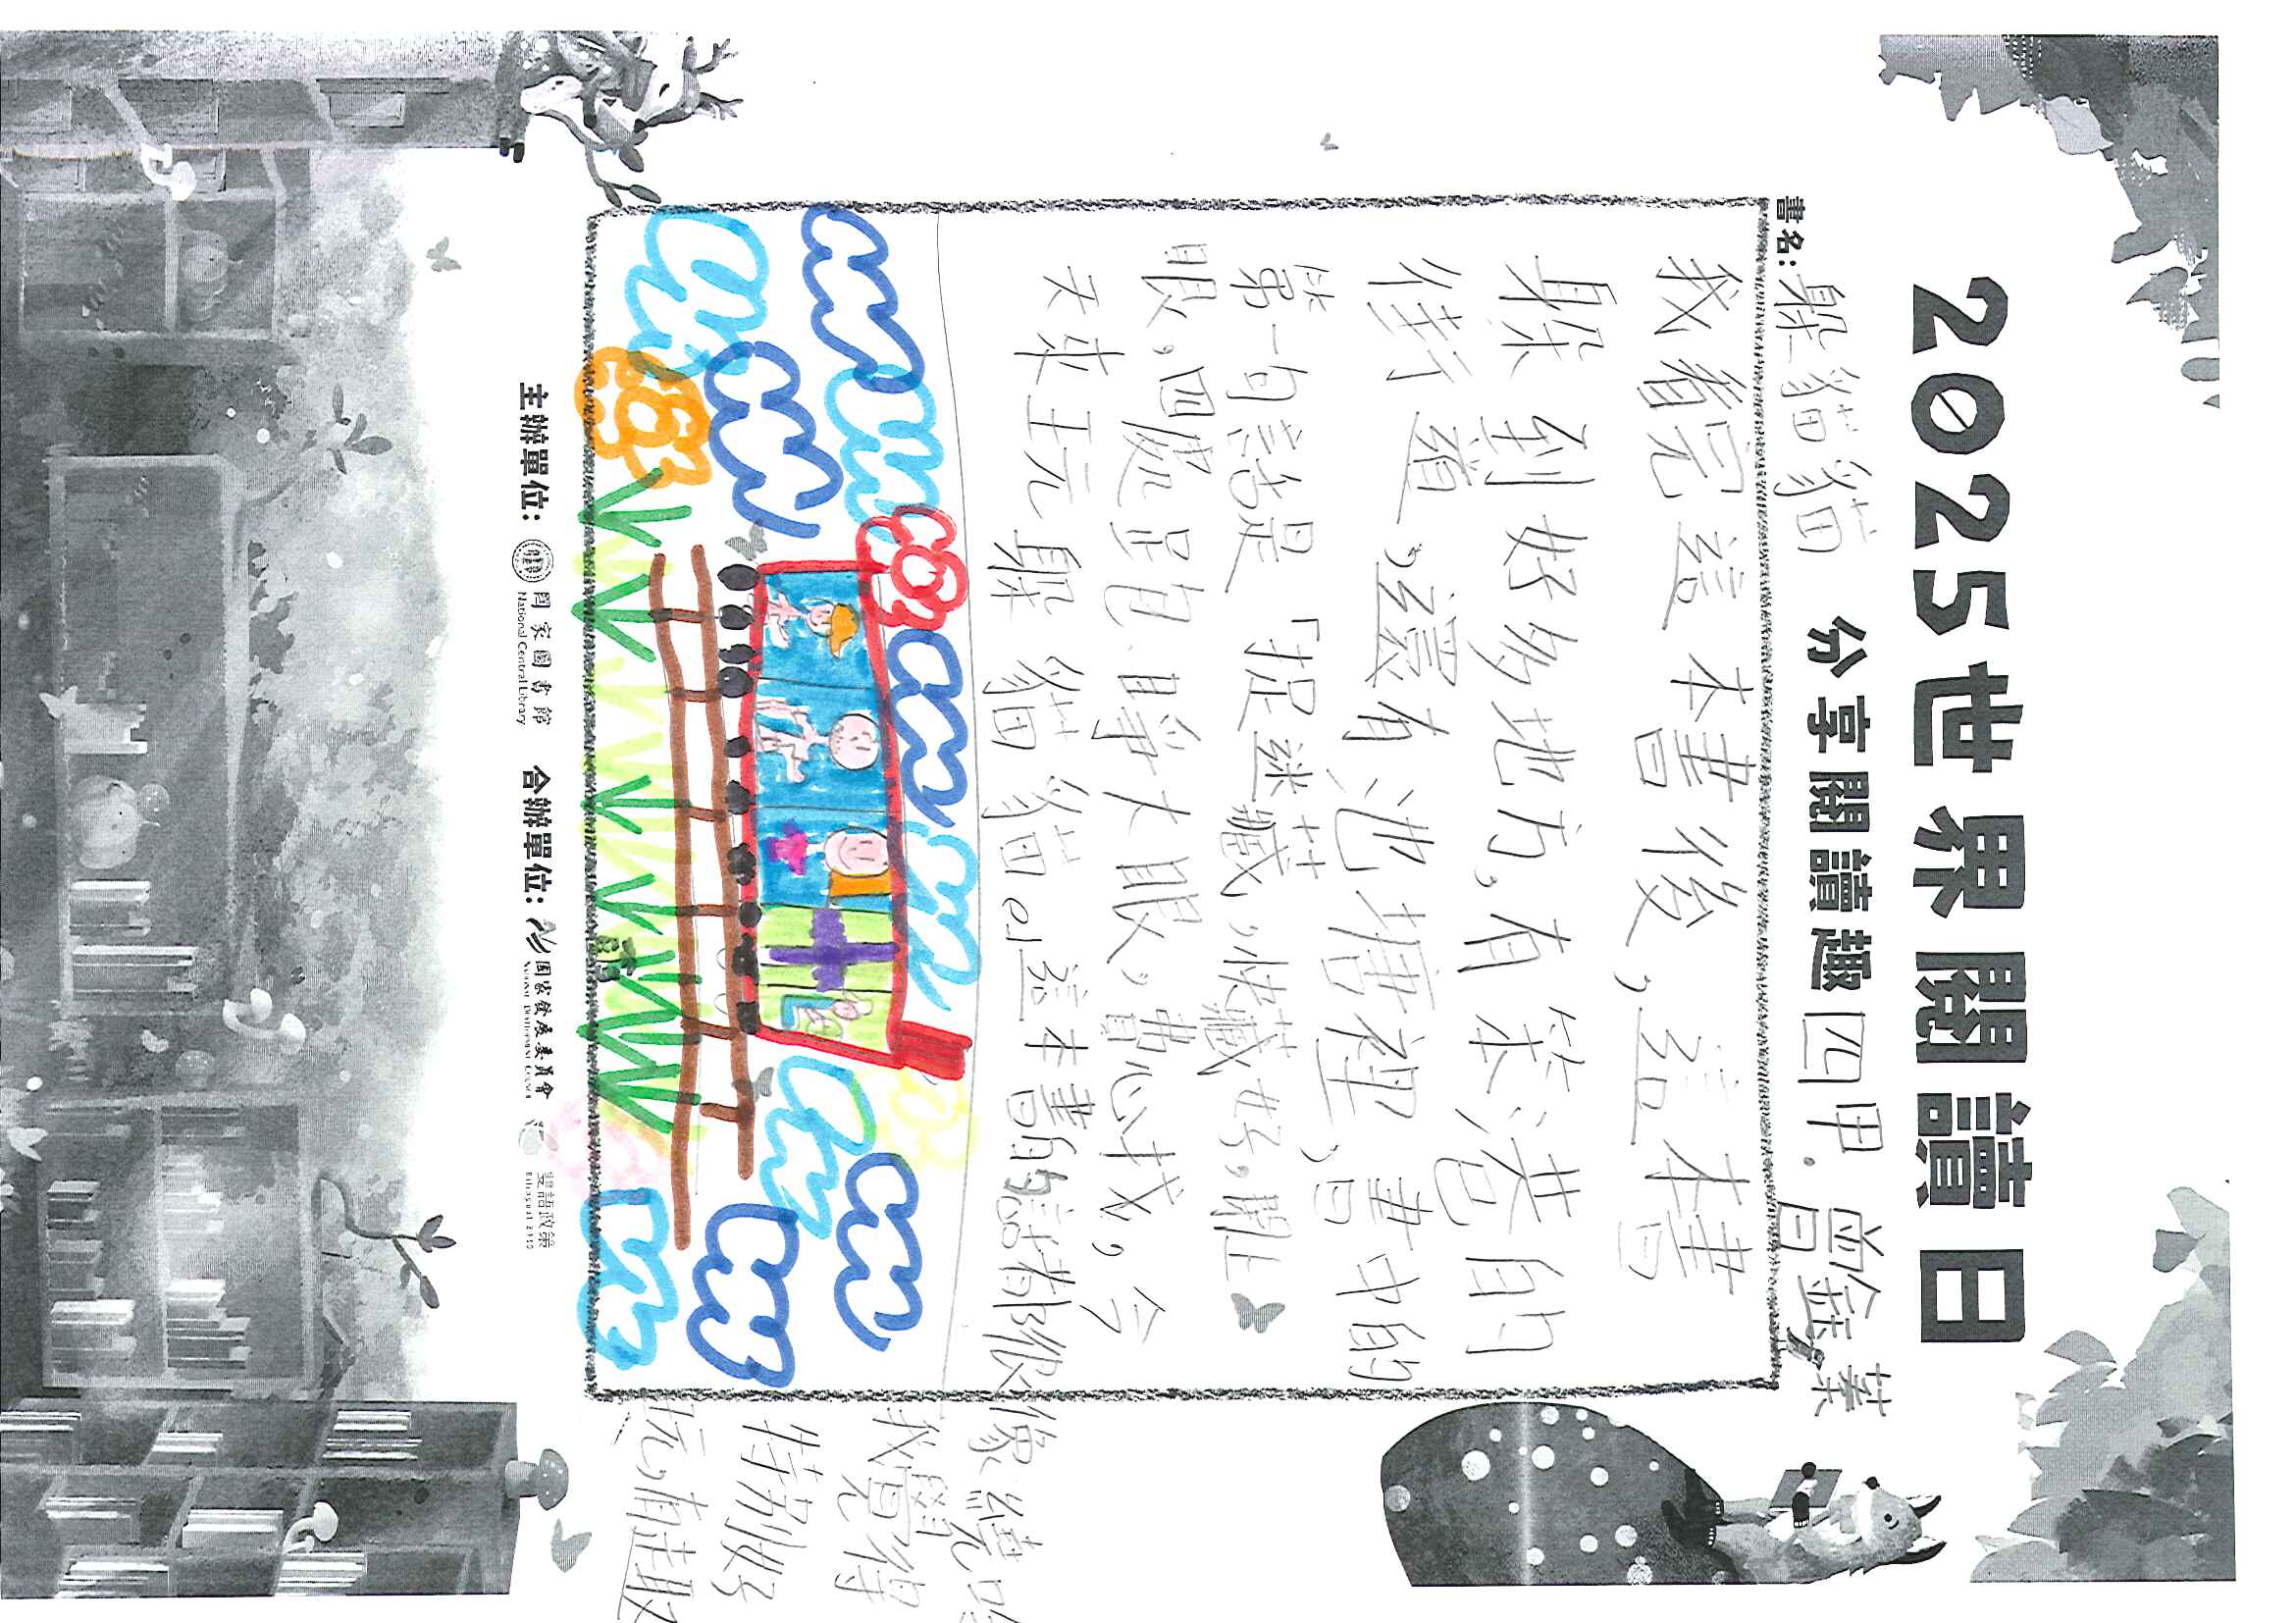 2025世界閱讀日
分享閱讀趣 四甲.曾鈺棻
書名:躲貓貓
我看完這本書後,這本書
躲到好多地方,有笨港的
街道,還有池塘裡,書中的
第一句話是「捉迷藏,收藏好,閉上
眼,四處是包、睜大眼,費心找,今
天來玩躲貓貓。」這本書的話都很
像繞口
我覺得
特別好
玩,有趣
主辦單位: 國家圖書館 National Central Library 合辦單位: 國家發展委員會 NATIONAL DEVELOPMENT COUNCIL 雙語政策 Bilingual 2030